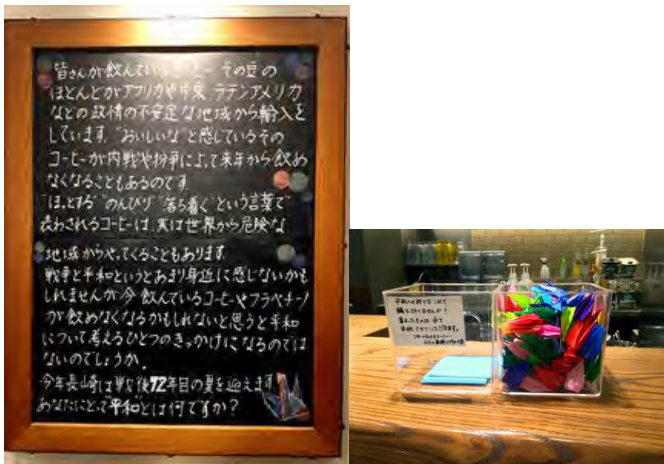 皆さんが飲んでいるコーヒー その豆の
ほとんどがアフリカや中東、ラテンアメリカ
などの政情の不安定な地域から輸入を
しています。"おいしいな"と感じているその
コーヒーが内戦や紛争によって来年から飲め
なくなることもあるのです。
"ほっとする" "のんびり" "落ち着く"という言葉で
表わされるコーヒーは、実は世界から危険な
地域からやってくることもあります。
戦争と平和というとあまり身近に感じないかも
しれませんが今飲んでいるコーヒーやフラペチーノ
が飲めなくなるかもしれないと思うと平和
について考えるひとつのきっかけになるのでは
ないのでしょうか。
今年長崎は戦後72年目の夏を迎えます
あなたにとって"平和"とは何ですか?